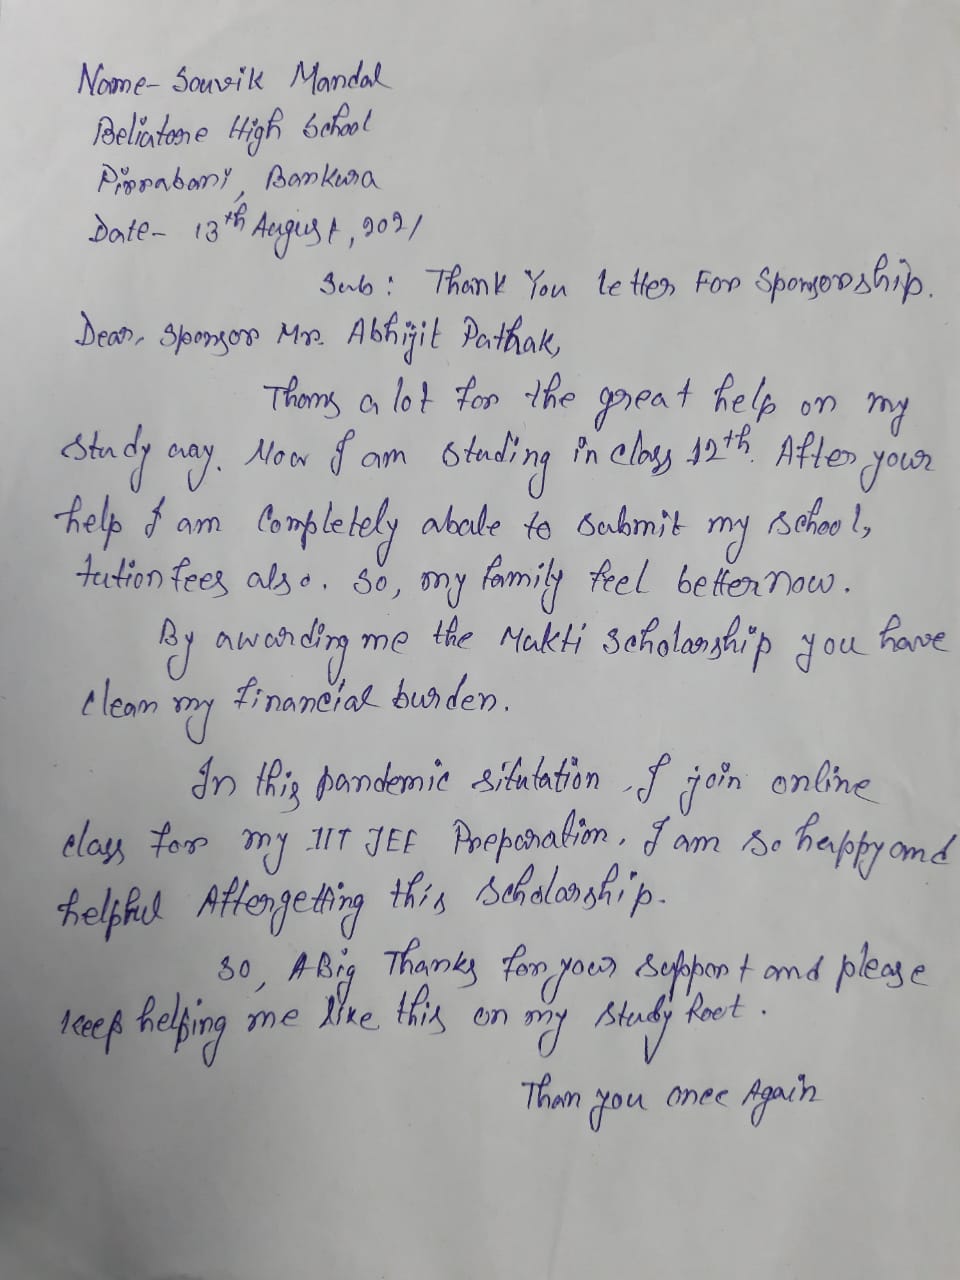 Name- Souvik Mandal
Beliatore High School
Pirrabani, Bankura
Date- 13th August, 2021
Sub: Thank You letter For Sponsorship.
Dear, Sponsor Mr. Abhijit Pathak,
Thans a lot for the great help on my
study way. Now I am studing in class 12th. After your
help I am Completely abale to submit my school,
tution fees also. So, my family feel better now.
By awarding me the Mukti Scholarship you have
clean my financial burden.
In this pandemic situtation, I join online
class for my IIT JEE Preparation. I am so happy and
helpful After getting this Scholarship.
So, A Big Thanks for your support and please
keep helping me like this on my study Root.
Than you once Again